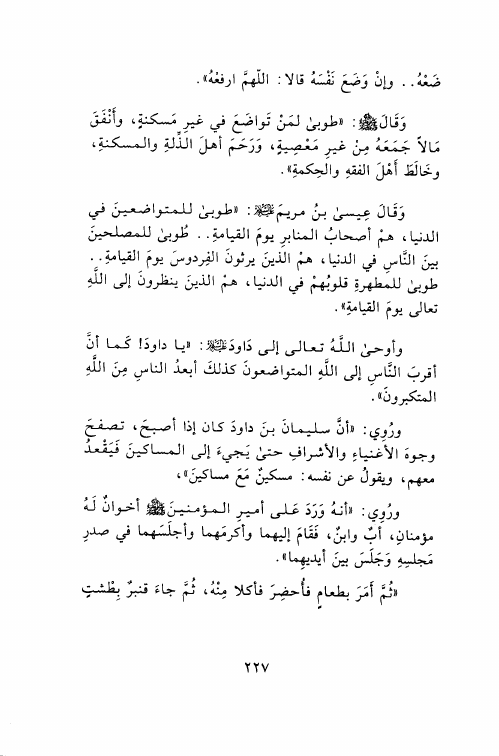 ضَعْهُ.. وإنْ وَضَعَ نَفْسَهُ قالا: اللّهمَّ ارفعْهُ».
وَقَالَ ﷺ: «طوبىٰ لمَنْ تَواضَعَ في غيرِ مَسكنةٍ، وأَنْفَقَ
مَالاً جَمَعَهُ مِنْ غيرِ مَعْصِيةٍ، وَرَحَمَ أهلَ الذِّلةِ والمسكنةِ،
وخَالَطَ أَهْلَ الفقهِ والحِكمةِ».
وَقَالَ عِيسىٰ بنُ مريمَ : «طوبىٰ للمتواضعينَ في
الدنيا، همْ أصحابُ المنابرِ يومَ القيامةِ.. طُوبىٰ للمصلحينَ
بينَ النَّاسِ في الدنيا، همُ الذينَ يرثونَ الفِردوسَ يومَ القيامةِ..
طوبىٰ للمطهرةِ قلوبُهمْ في الدنيا، همُ الذينَ ينظرونَ إلى اللَّهِ
تعالى يومَ القيامةِ».
وأوحىٰ اللَّهُ تعالى إلى دَاودَ : «يا داودُ! كَما أنَّ
أقربَ النَّاسِ إلى اللَّهِ المتواضعونَ كذلكَ أبعدُ الناسِ مِنَ اللَّهِ
المتكبرونَ».
ورُوِي: «أنَّ سليمانَ بنَ داودَ كان إذا أصبحَ، تصفحَ
وجوهَ الأغنياءِ والأشرافِ حتىٰ يَجيءَ إلى المساكينِ فَيَقْعدُ
معهم، ويقولُ عن نفسه: مسكينٌ مَعَ مساكينَ»،
ورُوِي: «أنهُ وَرَدَ عَلى أميرِ المؤمنينَ  أخوانٌ لَهُ
مؤمنانِ، أبٌ وابنٌ، فَقَامَ إليهما وأكرمَهما وأجلَسَهما في صدرِ
مَجلسِهِ وَجَلَسَ بينَ أيديهِما».
«ثُمَّ أَمَرَ بطعامٍ فأُحضِرَ فأكلا مِنْهُ، ثُمَّ جاءَ قنبرٌ بِطْشتٍ
٢٢٧